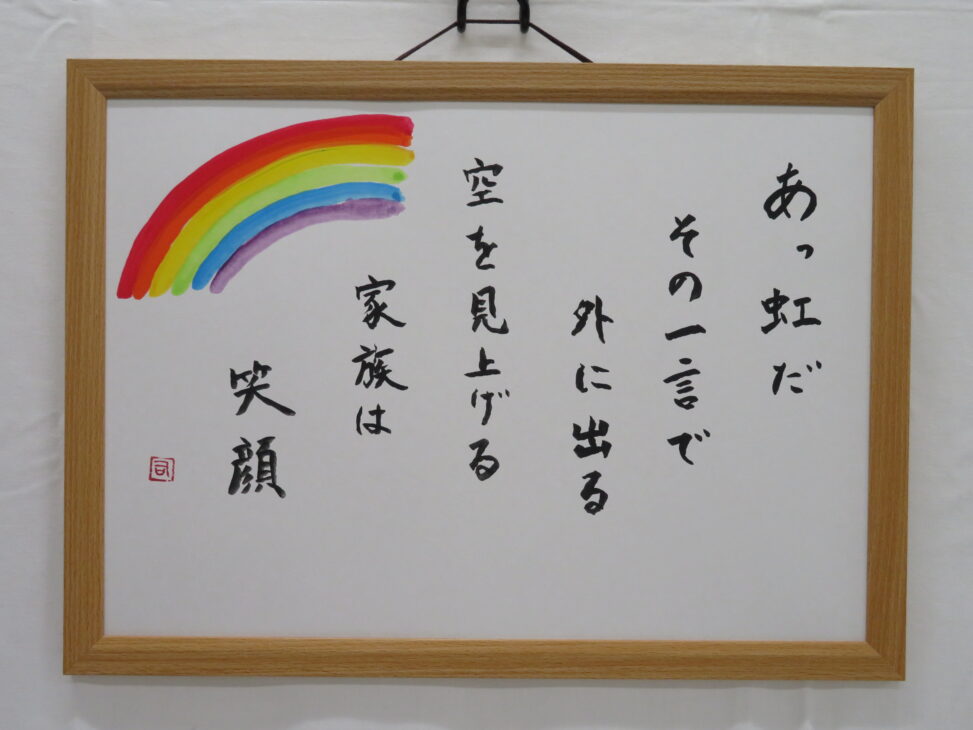 あっ虹だ
その一言で
外に出る
空を見上げる
家族は
笑顔